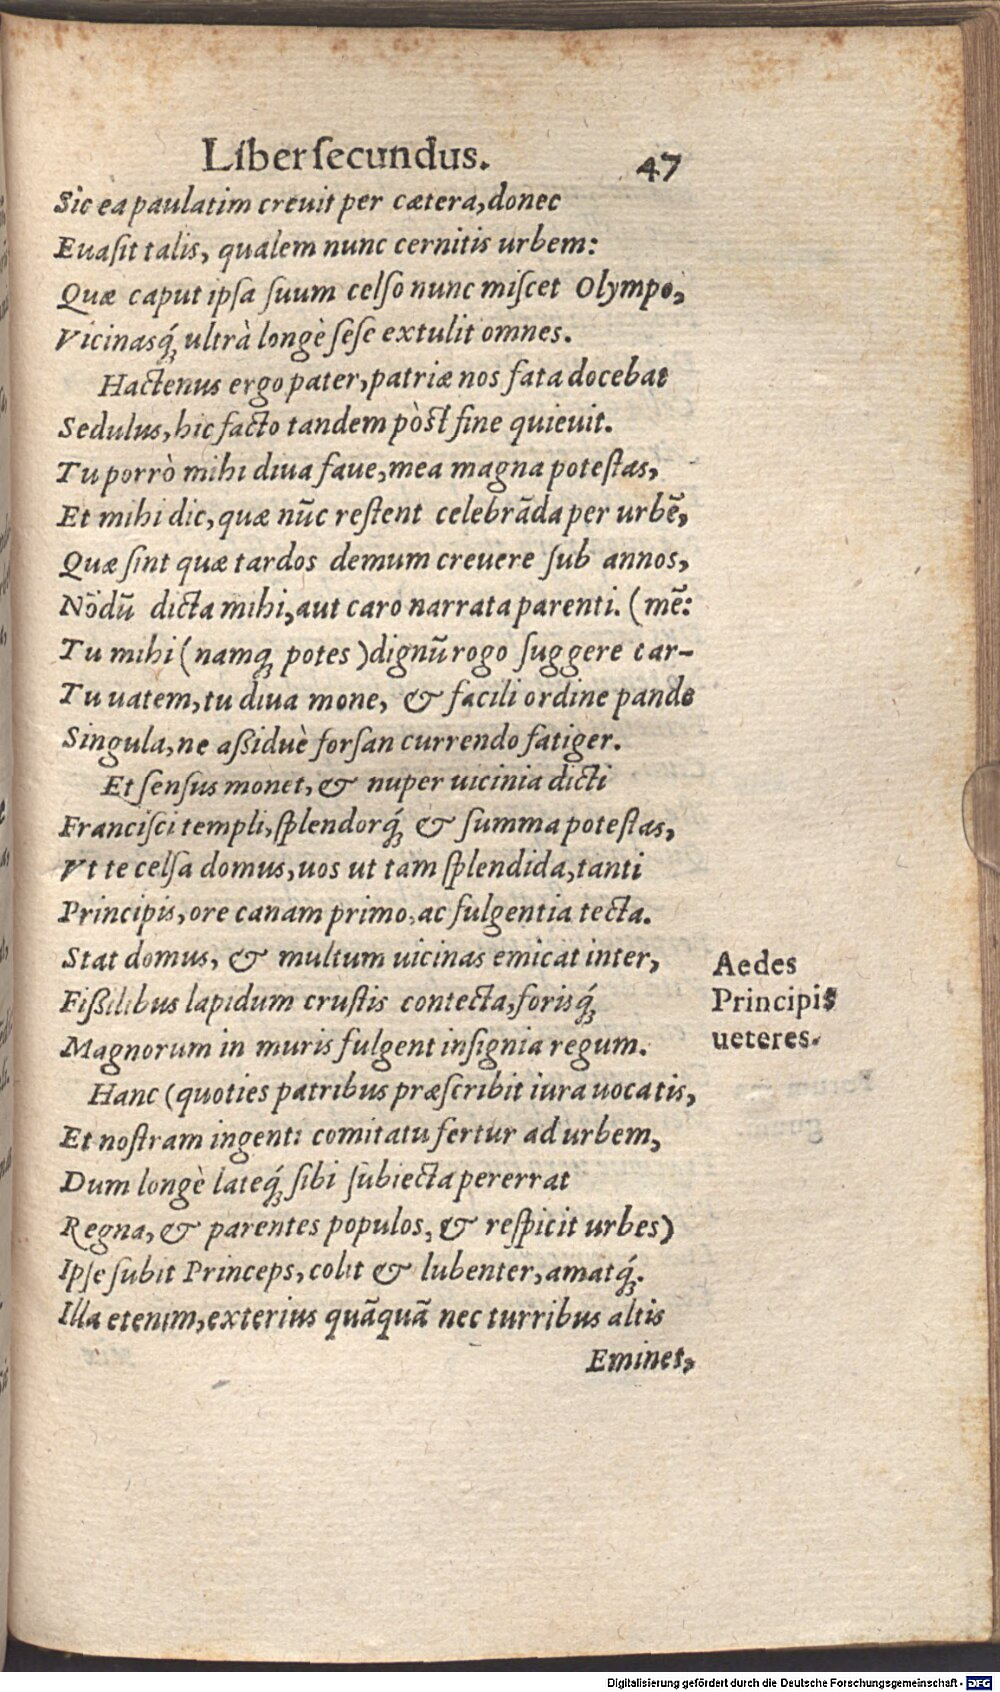 Liber secundus. 47
Sic ea paulatim creuit per cætera, donec
Euasit talis, qualem nunc cernitis urbem:
Quæ caput ipsa suum celso nunc miscet Olympo,
Vicinasq́; ultrà longè sese extulit omnes.
Hactenus ergo pater, patriæ nos fata docebat
Sedulus, hic facto tandem pòst fine quieuit.
Tu porrò mihi diua faue, mea magna potestas,
Et mihi dic, quæ nūc restent celebrāda per urbē,
Quæ sint quæ tardos demum creuere sub annos,
Nōdū dicta mihi, aut caro narrata parenti. (mē:
Tu mihi (namq; potes) dignū rogo suggere car-
Tu uatem, tu diua mone, & facili ordine pande
Singula, ne aßiduè forsan currendo fatiger.
Et sensus monet, & nuper uicinia dicti
Francisci templi, splendorq́; & summa potestas,
Vt te celsa domus, uos ut tam splendida, tanti
Principis, ore canam primo, ac fulgentia tecta.
Stat domus, & multum uicinas emicat inter,
Fißilibus lapidum crustis contecta, forisq́;
Magnorum in muris fulgent insignia regum.
Aedes
Principis
ueteres.
Hanc (quoties patribus præscribit iura uocatis,
Et nostram ingenti comitatu fertur ad urbem,
Dum longè lateq́; sibi subiecta pererrat
Regna, & parentes populos, & respicit urbes)
Ipse subit Princeps, colit & lubenter, amatq́;.
Illa etenim, exterius quāquā nec turribus altis
Eminet,
Digitalisierung gefördert durch die Deutsche Forschungsgemeinschaft - DFG